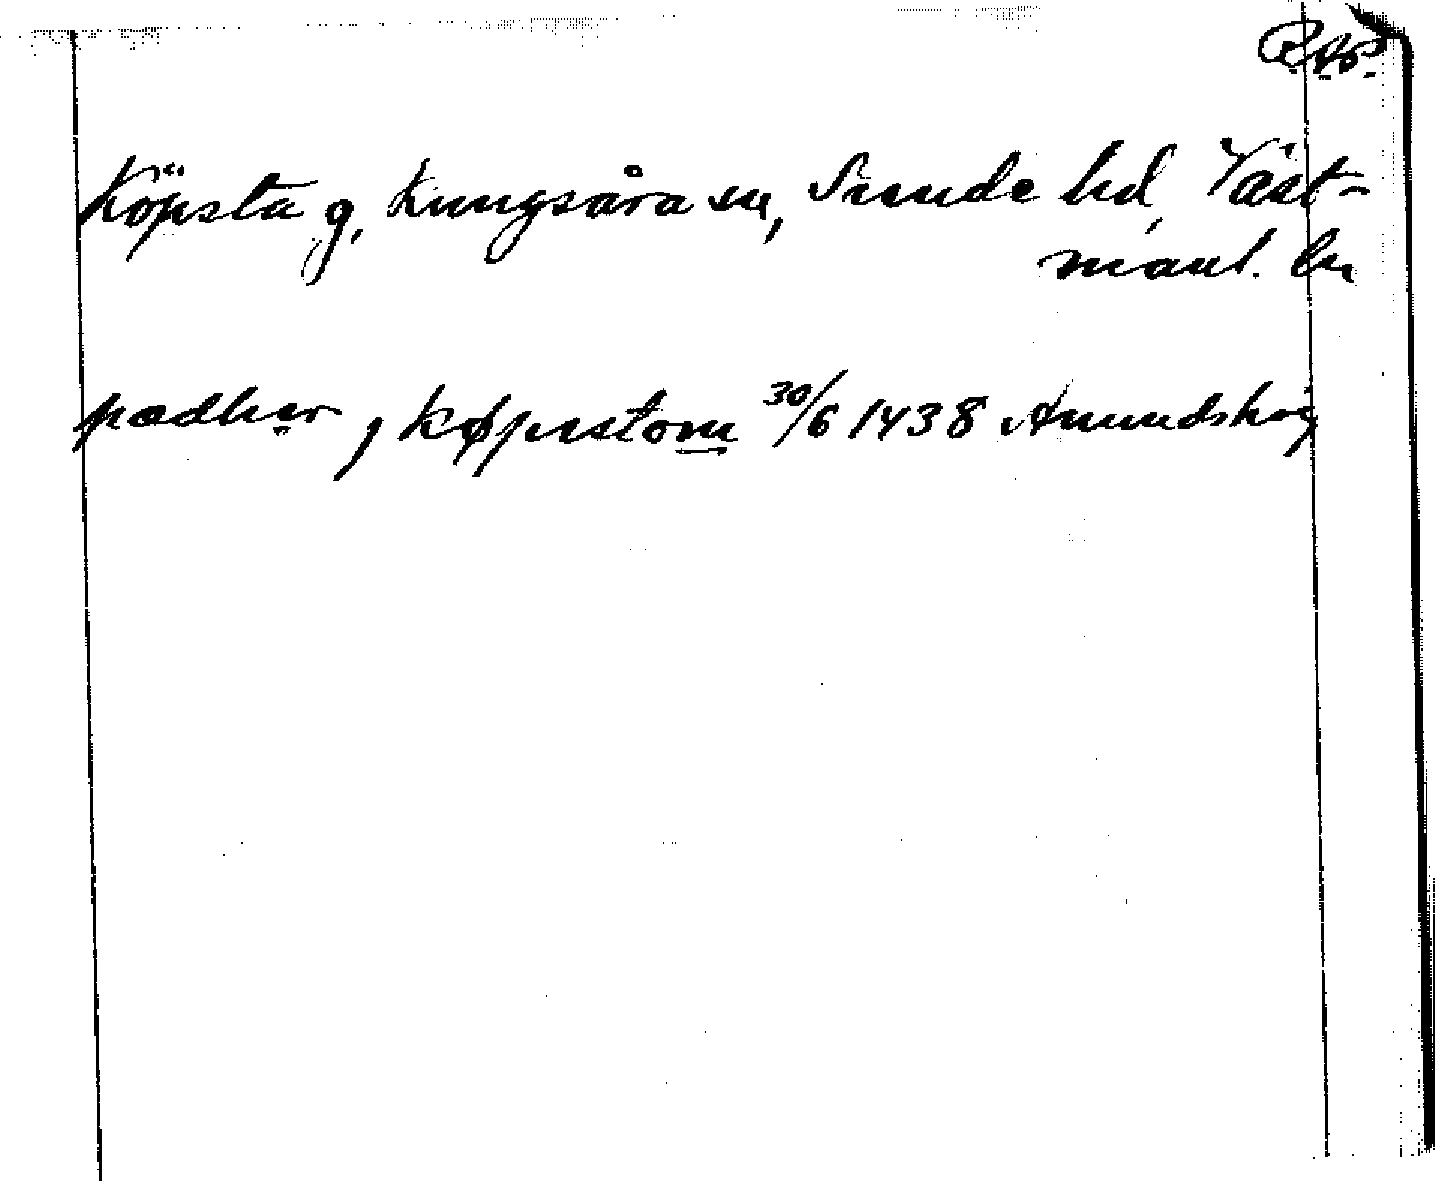 RAp.
Köpsta g, Kungsåra sn, Siende hd, Väst-
manl. ln
pædher j køpestom 30/6 1438 Amundshög